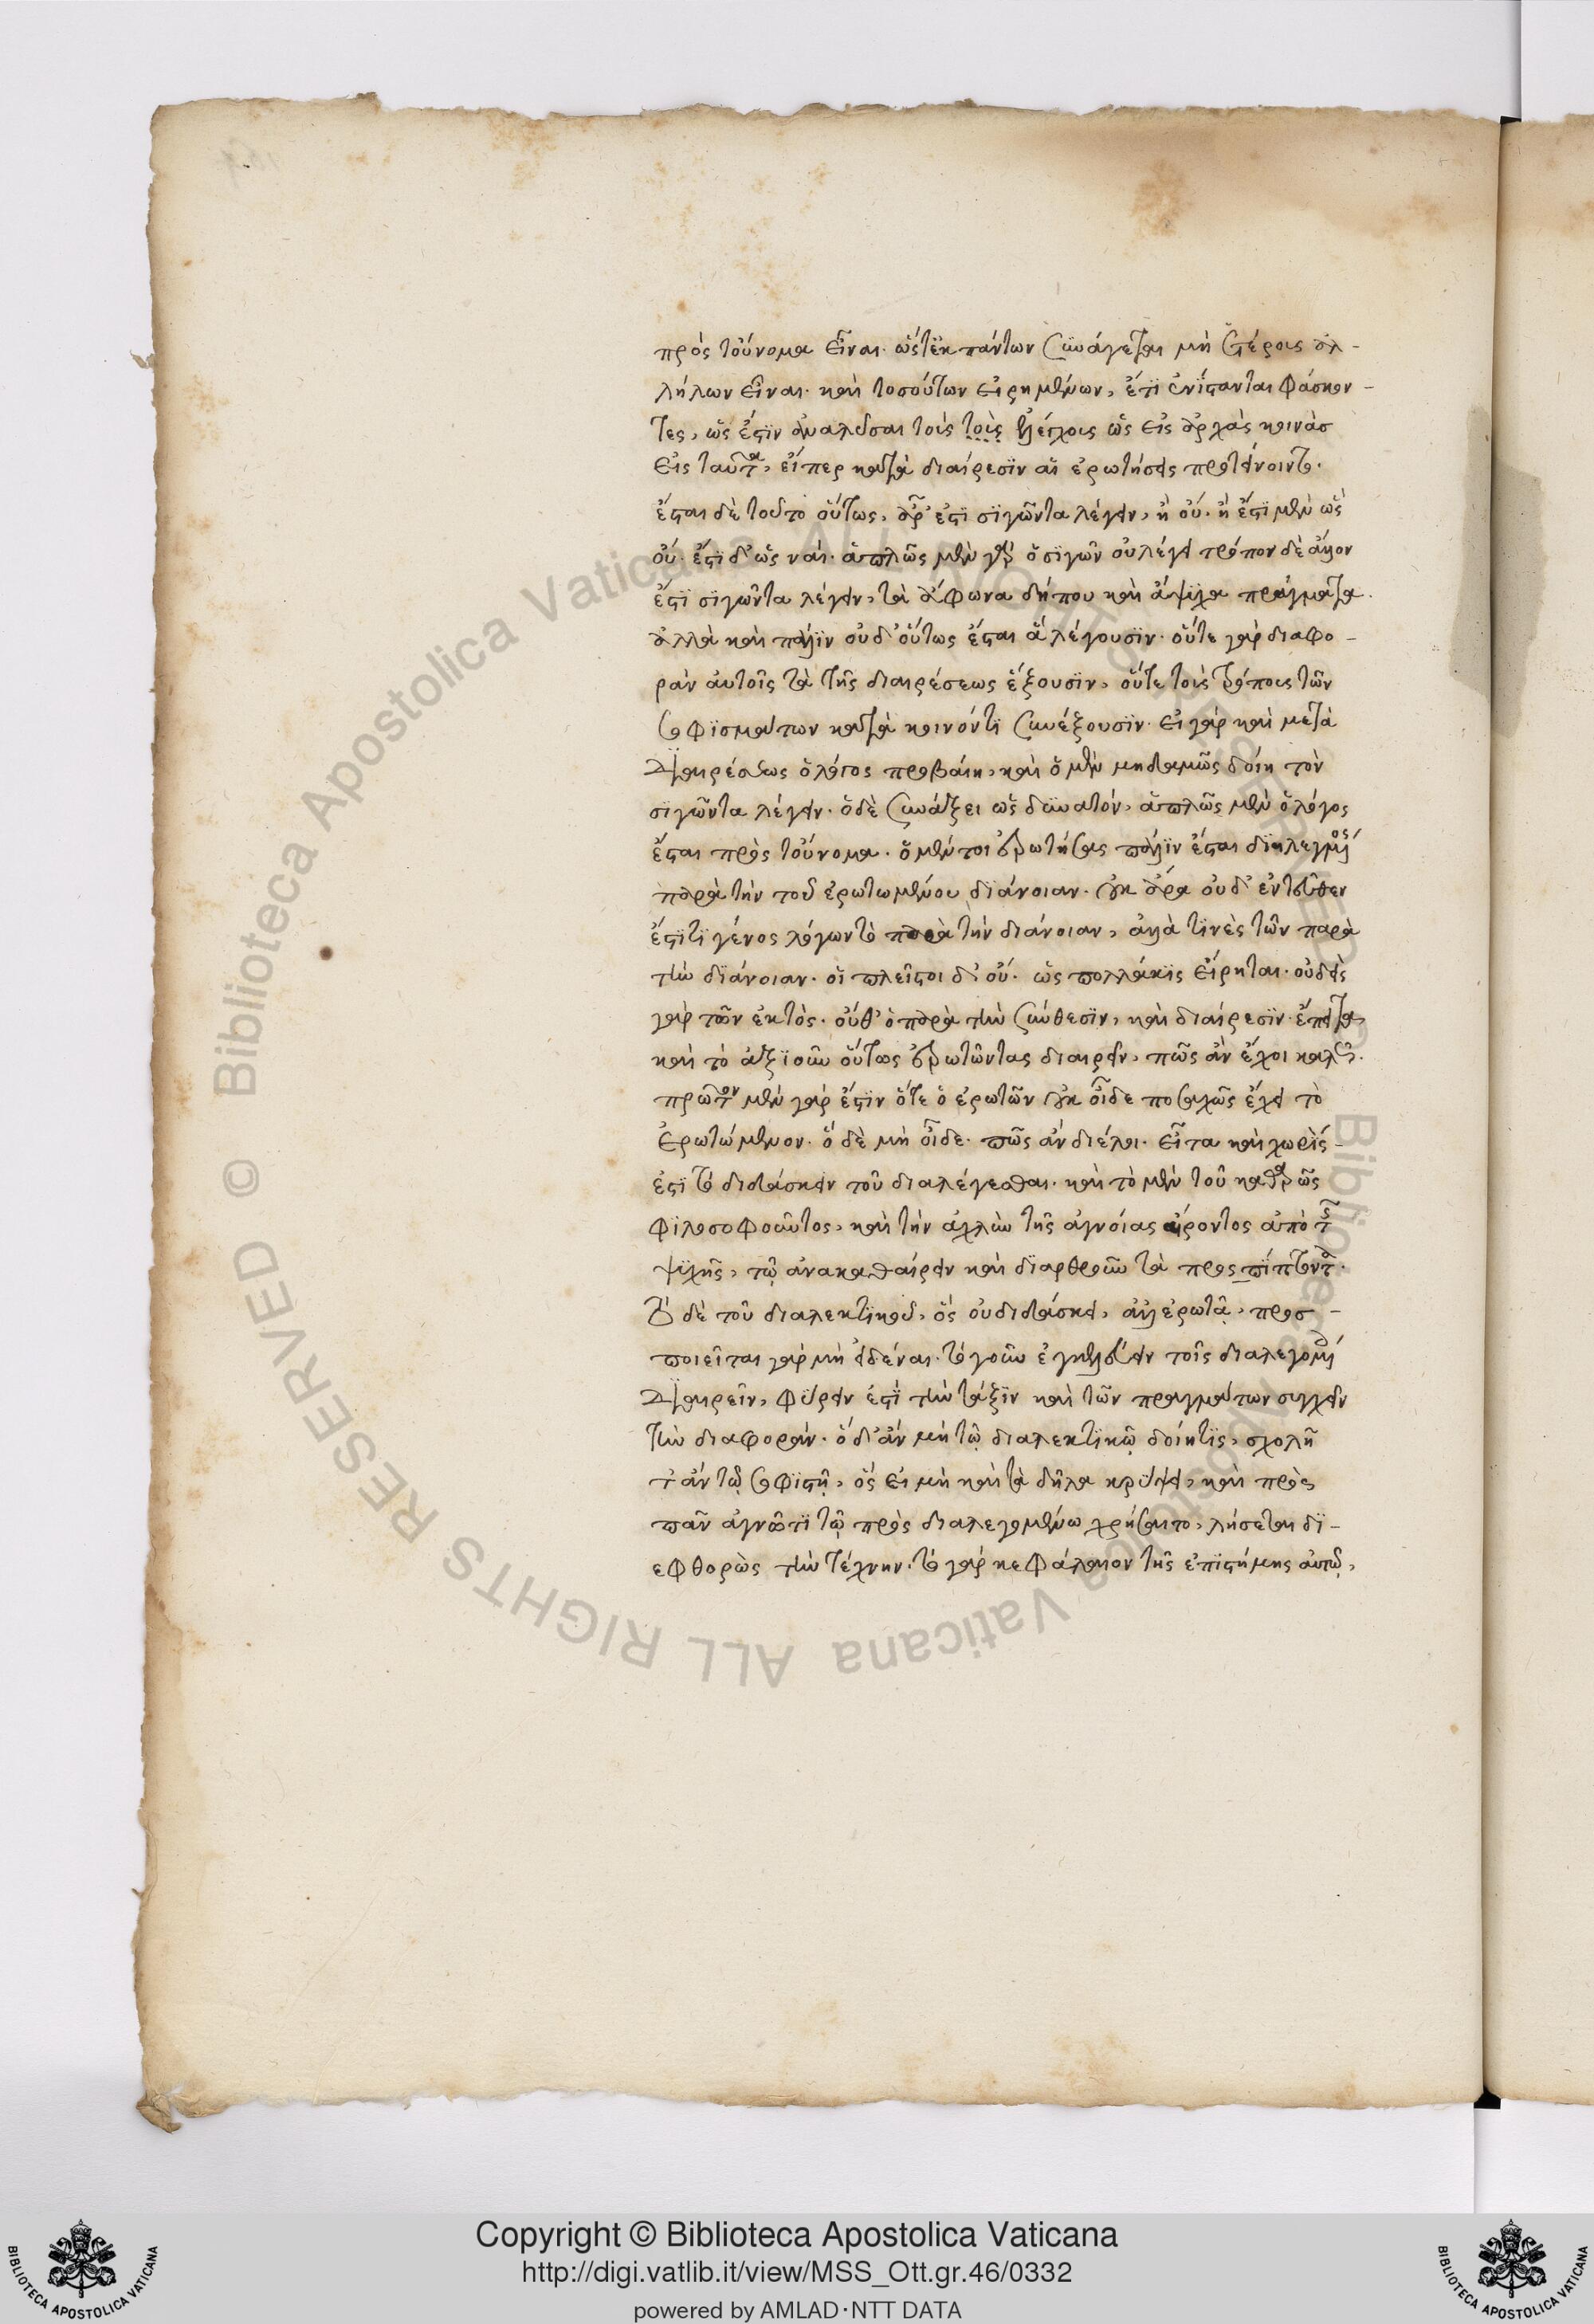 πρὸς τοὔνομα εἶναι. ὥστ' ἐκ πάντων συνάγεται μὴ ἑτέρους ἀλ-
λήλων εἶναι. καὶ τοσούτων εἰρημένων, ἔτι ἐνίστανται φάσκον-
τες, ὡς ἔστιν ἀναλῦσαι τοὺς τοὺς ἐλέγχους ὡς εἰς ἀρχὰς κοινὰσ
εἰς ταῦτα, εἴπερ κατὰ διαίρεσιν αἱ ἐρωτήσεις προτείνοιντο.
ἔσται δὲ τοῦτο οὕτως, ἆρ' ἔστι σιγῶντα λέγειν, ἢ οὔ. ἢ ἔστι μὲν ὡς
οὔ. ἔστι δ' ὡς ναί. ἁπλῶς μὲν γὰρ ὁ σιγῶν οὐ λέγει τρόπον δὲ ἄλλον
ἔστι σιγῶντα λέγειν, τὰ ἄφωνα δήπου καὶ ἄψυχα πράγματα.
ἀλλὰ καὶ πάλιν οὐδ' οὕτως ἔσται ἃ λέγουσιν. οὔτε γὰρ διαφο-
ρὰν αὐτοῖς τὰ τῆς διαιρέσεως ἕξουσιν, οὔτε τοὺς τρόπους τῶν
σοφισμάτων κατὰ κοινόν τι συνέξουσιν. εἰ γὰρ καὶ μετὰ
διαιρέσεως ὁ λόγος προβαίη, καὶ ὁ μὲν μηδαμῶς δοίη τὸν
σιγῶντα λέγειν. ὁ δὲ συνάξει ὡς δυνατόν, ἁπλῶς μὲν ὁ λόγος
ἔσται πρὸς τοὔνομα. ὁ μέντοι ἐρωτήσας πάλιν ἔσται διηλεγμένος
παρὰ τὴν τοῦ ἐρωτωμένου διάνοιαν. οὐκ ἄρα οὐδ' ἐντεῦθεν
ἔστι τι γένος λόγων τὸ παρὰ τὴν διάνοιαν, ἀλλὰ τινὲς τῶν παρὰ
τὴν διάνοιαν. οἱ πλεῖστοι δ' οὔ. ὡς πολλάκις εἴρηται. οὐδεὶς
γὰρ τῶν ἐκτὸς. οὔθ' ὁ παρὰ τὴν σύνθεσιν, καὶ διαίρεσιν. ἔπειτα
καὶ τὸ ἀξιοῦν οὕτως ἐρωτῶντας διαιρεῖν, πῶς ἂν ἔχοι καλῶς.
πρῶτον μὲν γὰρ ἔστιν ὅτε ὁ ἐρωτῶν οὐκ οἶδε ποσαχῶς ἔχει τὸ
ἐρωτώμενον. ὃ δὲ μὴ οἶδε. πῶς ἂν διέλοι. εἶτα καὶ χωρίς-
ἐστι τὸ διδάσκειν τοῦ διαλέγεσθαι. καὶ τὸ μὲν τοῦ καθαρῶς
φιλοσοφοῦντος, καὶ τὴν ἀχλὺν τῆς ἀγνοίας αἴροντος ἀπὸ τῆς
ψυχῆς, τῷ ἀνακαθαίρειν καὶ διαρθροῦν τὰ προσπίπτοντα.
τὸ δὲ τοῦ διαλεκτικοῦ, ὃς οὐ διδάσκει, ἀλλ' ἐρωτᾷ, προσ-
ποιεῖται γὰρ μὴ εἰδέναι. τὸ γοῦν ἐγκελεύειν τοῖς διαλεγομένοις
διαιρεῖν, φύρειν ἐστὶ τὴν τάξιν καὶ τῶν πραγμάτων συγχεῖν
τὴν διαφοράν. ὃ δ' ἂν μὴ τῷ διαλεκτικῷ δοίη τις, σχολῇ
τ' ἂν τῷ σοφιστῇ, ὃς εἰ μὴ καὶ τὰ δῆλα κρύψει, καὶ πρὸς
πᾶν ἀγνῶτι τῷ προσδιαλεγομένῳ χρήσαιτο, λήσεται δι-
εφθορὼς τὴν τέχνην. τὸ γὰρ κεφάλαιον τῆς ἐπιστήμης αὐτῷ,
Copyright © Biblioteca Apostolica Vaticana
http://digi.vatlib.it/view/MSS_Ott.gr.46/0332
powered by AMLAD·NTT DATA